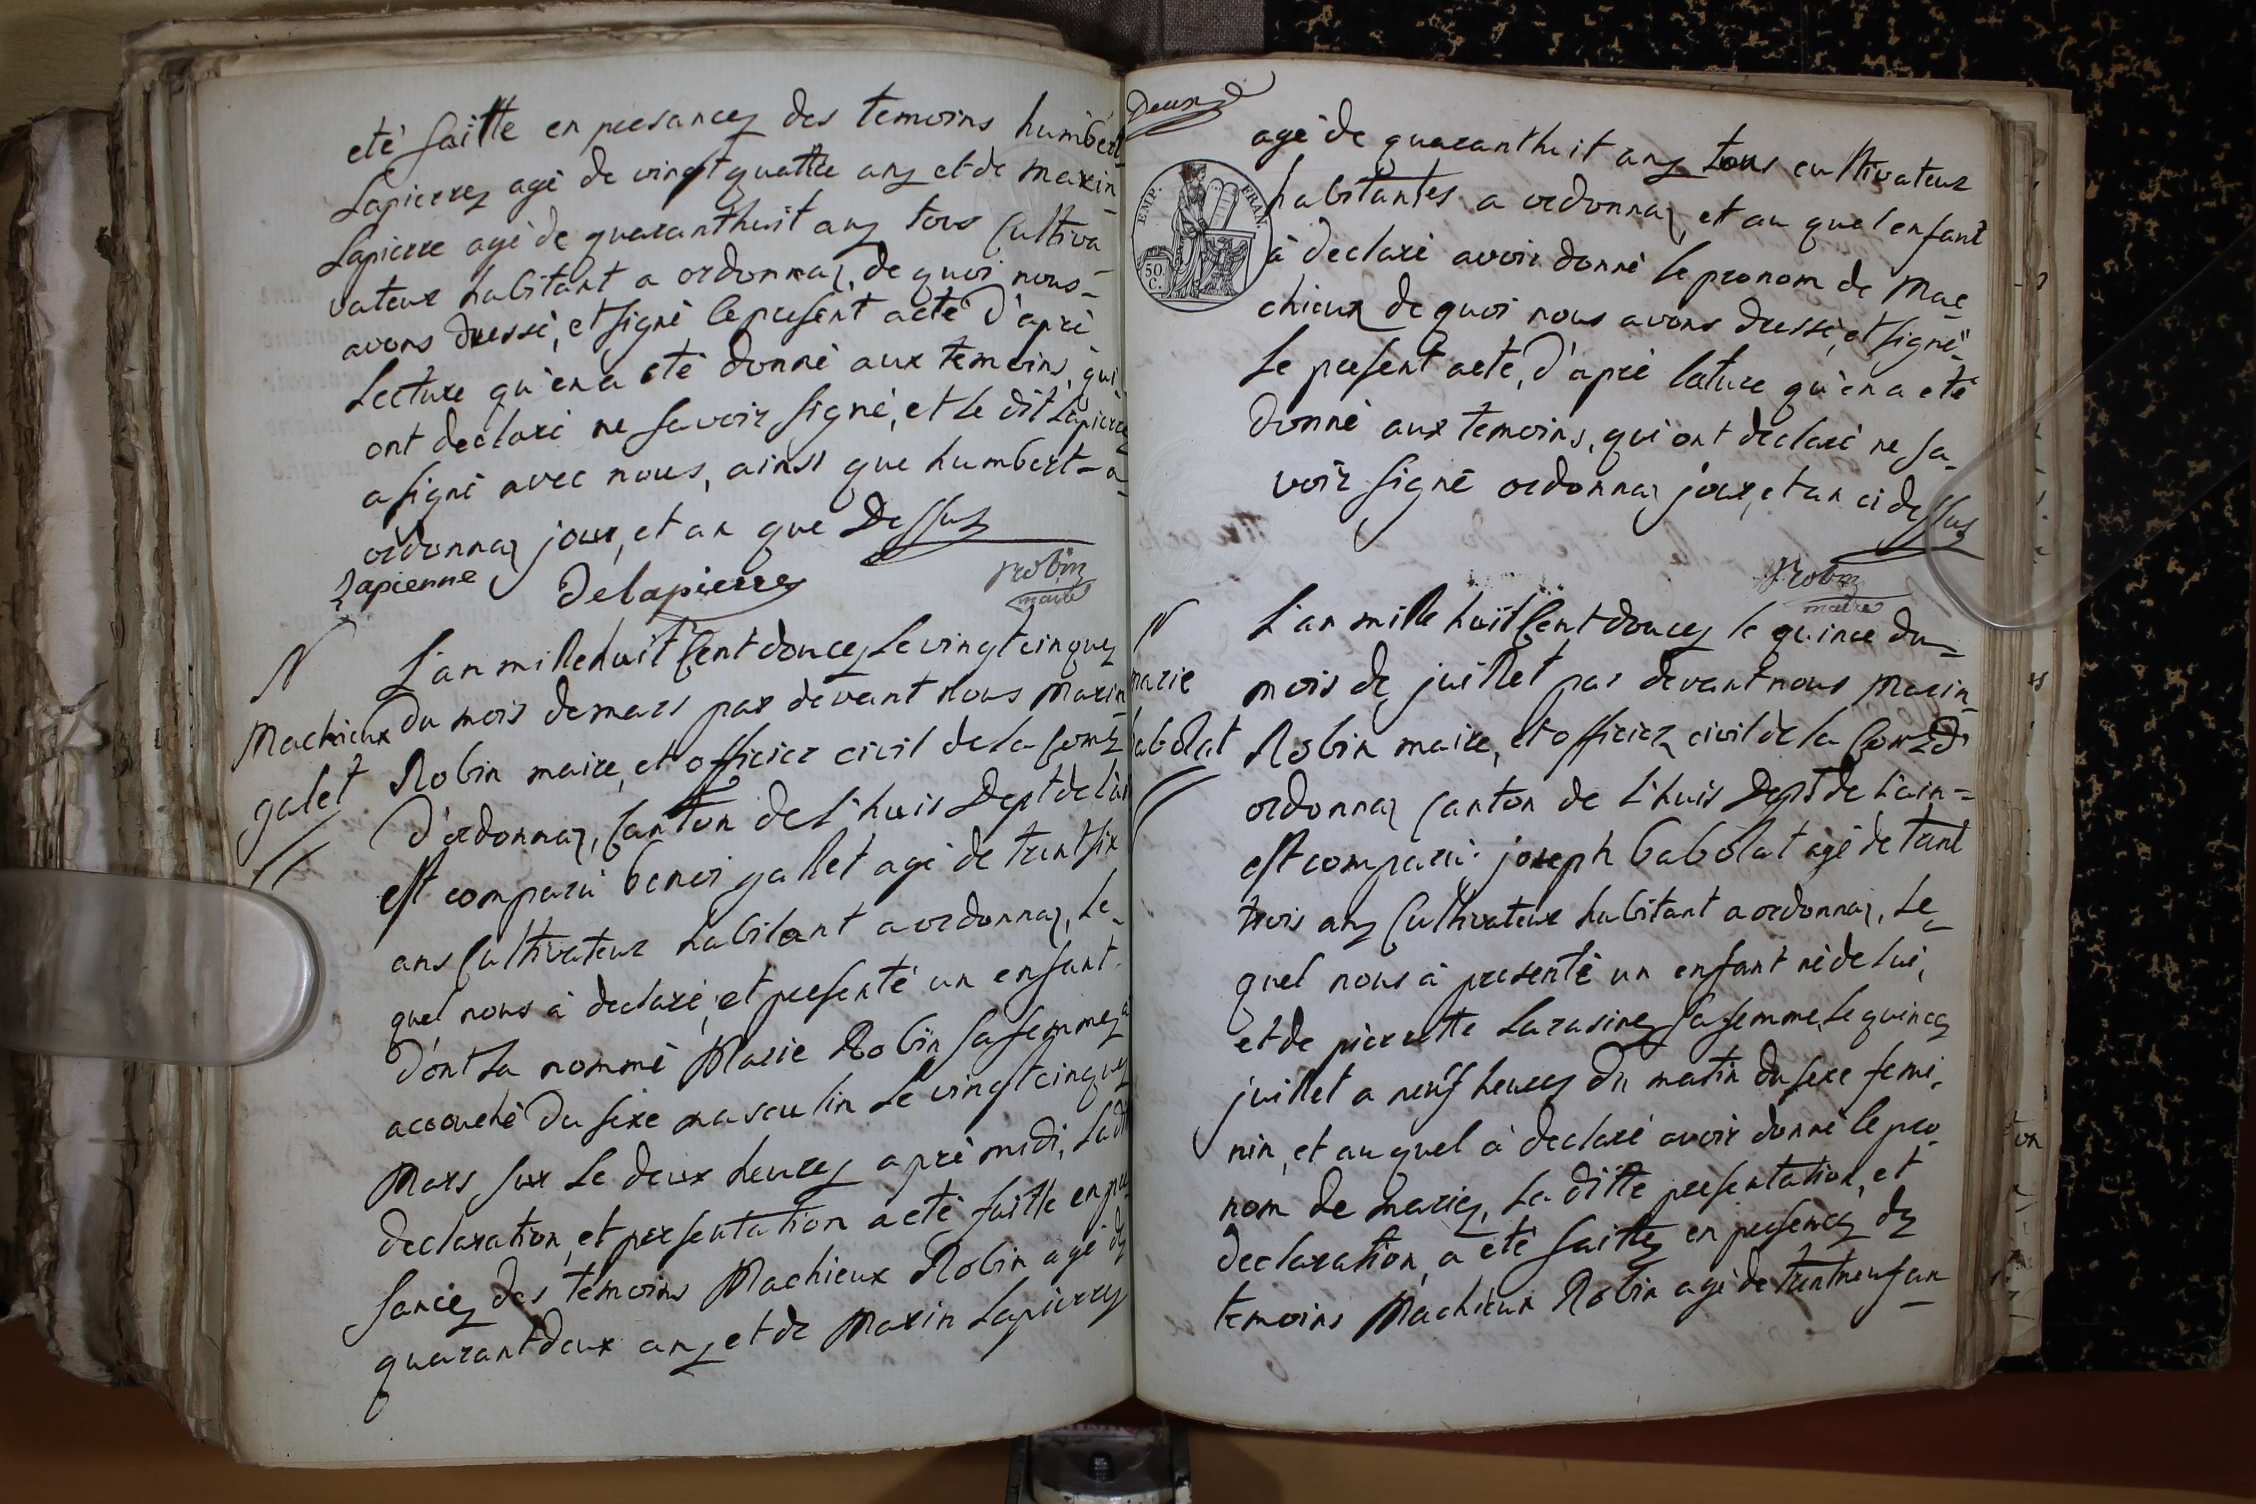 eté faitte en presancez des temoins humbert
Lapierrez agé de vingt quattre anz et de marin
Lapierre agé de quaranthuit anz tous Cultiva
vateur habitant a ordonnaz, de quoi nous
avons dressé, et signé le present acté d'aprè
Lecture qu'en a eté donné aux temoins, qui
ont declaré ne savoir signé, et le dit Lapierre
a signé avec nous, ainsi que humbert a
ordonnaz jour, et an que Dessus
Lapierre Delapierrez Robin
maire
N
Machieux
galet
L'an mille huit Cent doucez Le vingt cinquez
du mois de mars par devant nous Marin
Robin maire, et officier civil de la Comz
D'ordonnaz, Canton de L'huis Dept de L'ain
est comparu benoi gallet agé de trentsix
ans Cultivateur habitant a ordonnaz, Le
quel nous à declaré, et presenté un enfant
dont La nommé Marie Robin sa femmez a
accouché du sexe masculin Le vingt cinquez
Mars sur Le deux heurez aprè midi, Ladt
declaration, et presentation a eté faitte en pre
sancez des temoins Machieux Robin agé dz
quarantdeux anz et de Marin Lapierrez
Deux
EMP. FRAN.
50
C.
agé de quaranthuit anz tous cultivateur
habitantes a ordonnaz, et au quel enfant
à declaré avoir donné le pronom de Mac
chieux de quoi nous avons dressé, et signé
Le present acté, d'aprè lature qu'en a eté
donné aux temoins, qui ont declaré ne sa
voir signé ordonnaz jour, et an ci dessus
Robin
maire
N
marie
babolat
L'an mille huit Cent doucez le quince du
mois de juillet par devant nous Marin
Robin maire, et officier civil de la Comz d'
ordonnaz Canton de L'huis Dept de L'ain
est comparu joseph babolat agé de trant
trois anz Cultivateur habitant a ordonnaz, Le
quel nous à presenté un enfant né de lui,
et de pierrette Larasinez sa femme, Le quincez
juillet a neuf heurez du matin du sexe femi
nin, et au quel à declaré avoir donné le pro
nom de mariez, La ditte presentation, et
declaration, a eté faittez en presencez dz
temoins Machieux Robin agé de trentneuf an